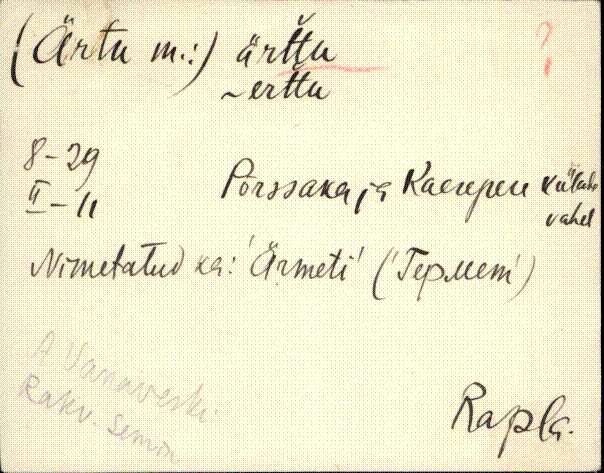 (Ärtu m.:) ärt̆t̆u
~ert̆t̆u
?
8-29
II-11
Põrssaka ja Kaerepere külade
vahel
Nimetatud ka: 'Ärmeti' ('Гермет')
A Vanaveski
Rakv. Semin
Rapla.